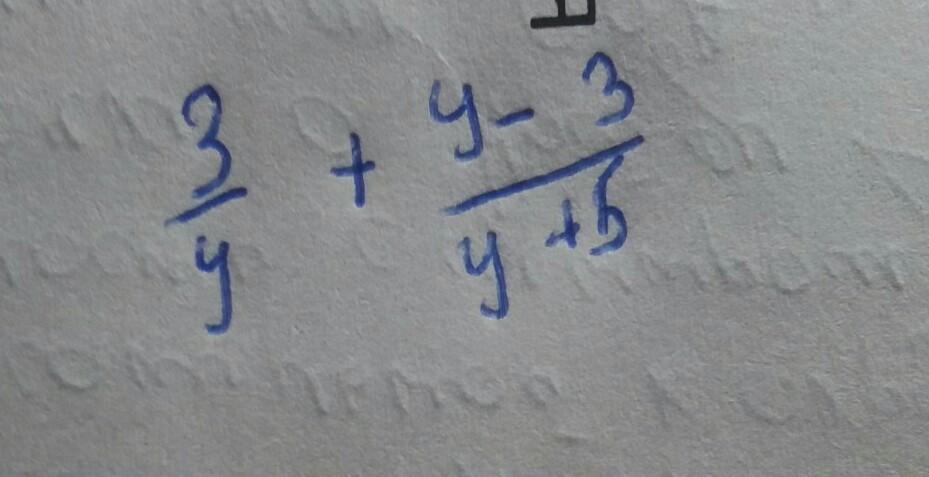 3/y + y - 3/y + 5